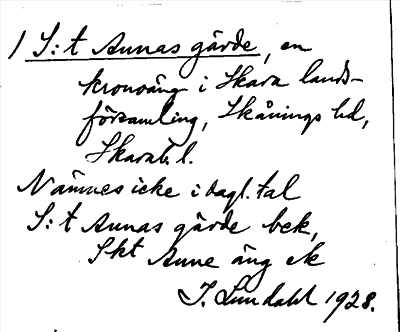 / S:t Annas gärde, en
kronoäng i Skara lands-
församling, Skånings hd,
Skarab. l.
Nämnes icke i dagl. tal
S:t Annas gärde bek,
Skt Anne äng ek
I. Lundahl 1928.